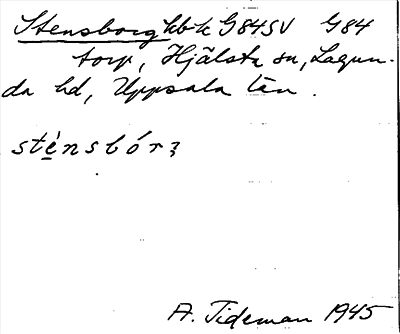 Stensborg kbk G84SV G84
torp, Hjälsta sn, Lagun-
da hd, Uppsala län.
stènsbórʒ
A. Tideman 1945